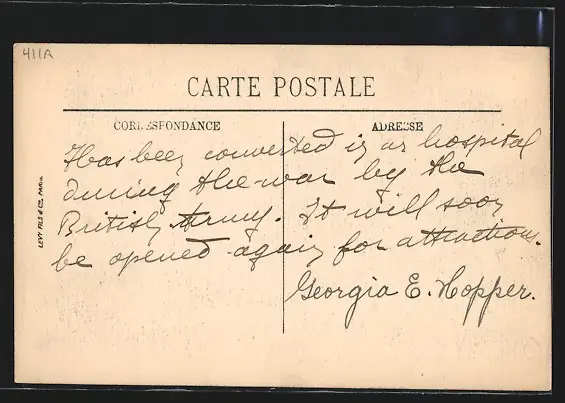 411A
CARTE POSTALE
CORRESPONDANCE
ADRESSE
Has been converted in as hospital
during the war by the
British Army. It will soon
be opened again for attractions.
Georgia E. Hopper.
LEVY FILS & Cie, PARIS